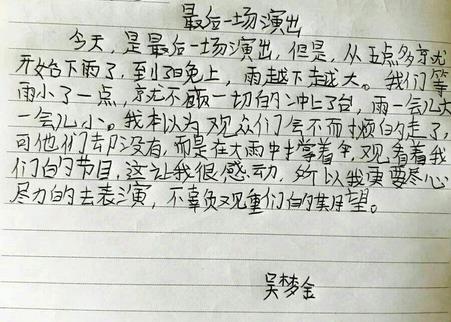 最后一场演出
今天,是最后一场演出,但是,从五点多就
开始下雨了,到了晚上,雨越下越大。我们等
雨小了一点,就不顾一切的冲上了台,雨一会儿大
一会儿小。我本以为观众们会不耐烦的走了,
可他们却没有,而是在大雨中撑着伞,观看着我
们的节目,这让我很感动,所以我更要尽心
尽力的去表演,不辜负观重们的期望。
吴梦金